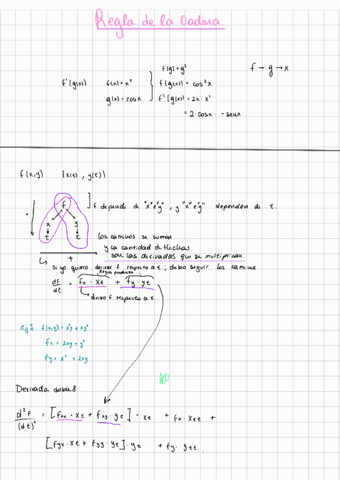 Regla de la Cadena.
f(g)=g²
f → g → x
f'(g(x))
f(x)=x²
f(g(x)) = cos²x
g(x)=cosx
f'(g(x)) = 2x · x'
= 2·cosx · -senx
f(x,y) (x(t), y(t))
f
x y
t t
f depende de "x" e "y", y "x" e "y" dependen de t.
los caminos se suman
y la cantidad de flechas
son las derivadas que se multiplican.
Si yo quiero derivar f respecto a t, debo seguir los caminos
df/dt = fx · xt + fy · yt
derivo f respecto a x
ej: f(x,y) = x²y + xy²
fx = 2xy + y²
fy = x² + 2xy
Derivadas dobles
d²f/(dt)² = [fxx · xt + fxy · yt] · xt + fx · xtt +
[fyx · xt + fyy · yt] · yt + fy · ytt